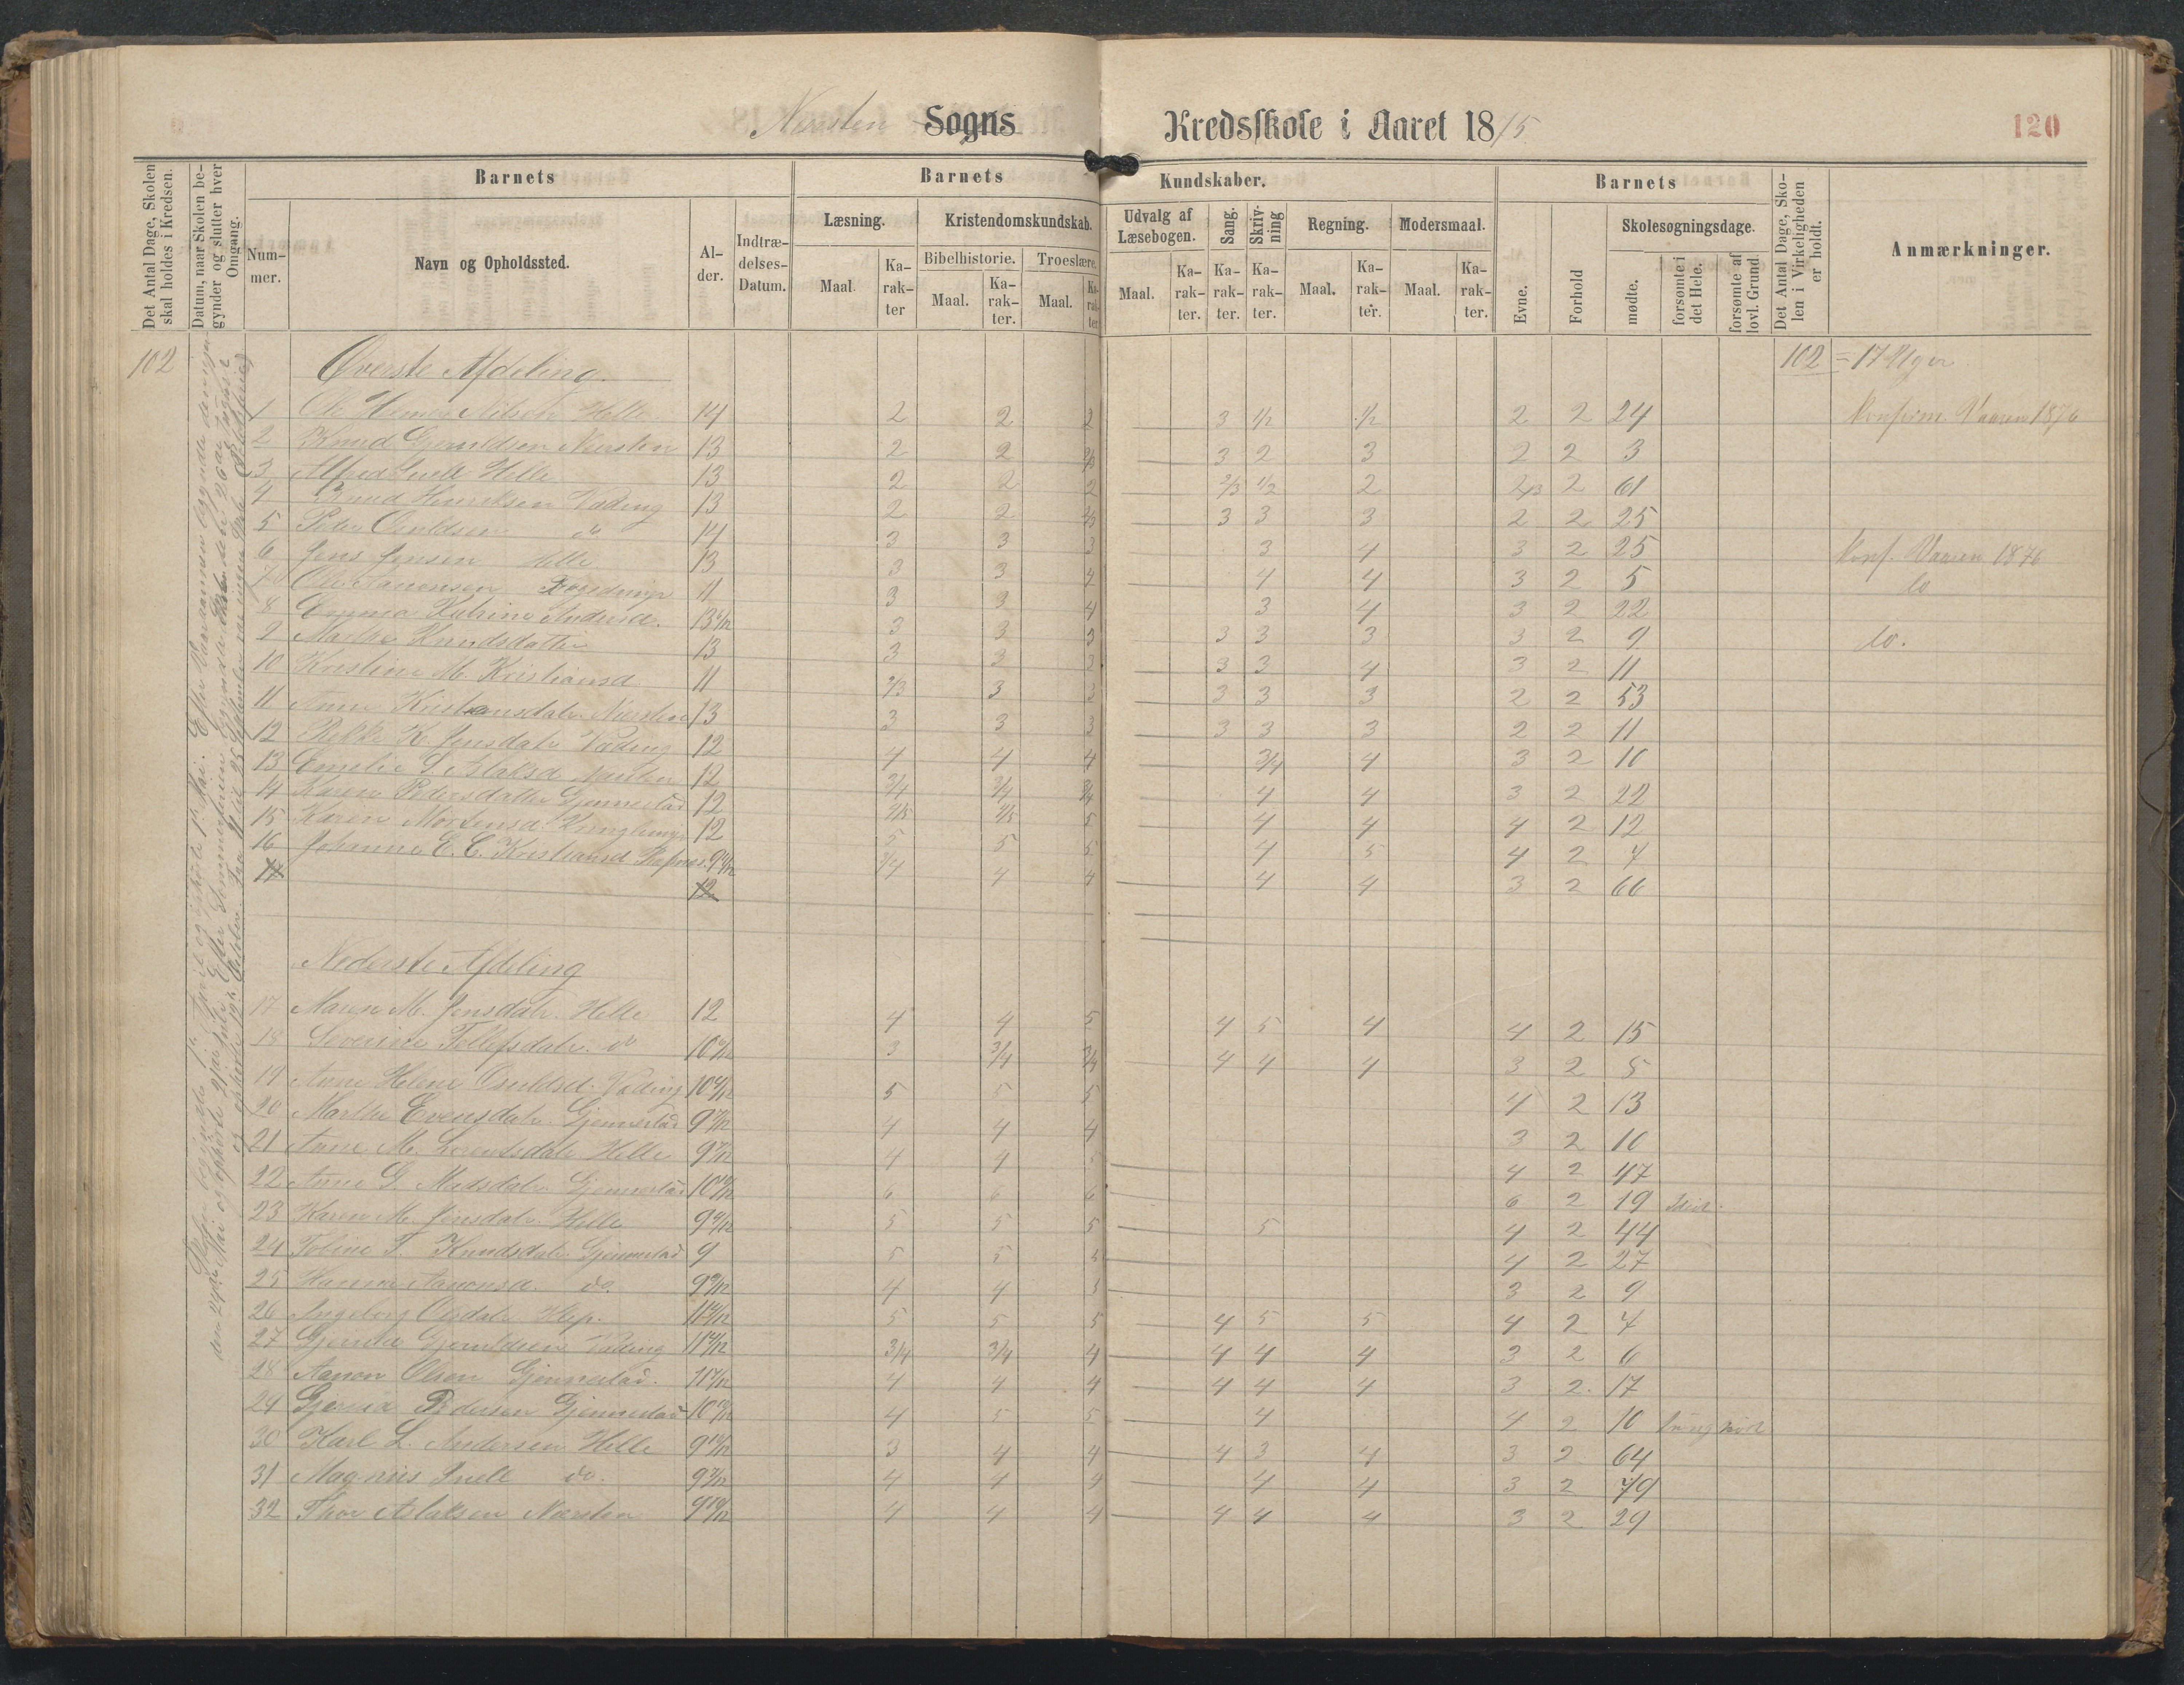 Næresten Sogns Kredsskole i Aaret 1875.
120
Det Antal Dage, Skolen skal holdes i Kredsen.
Datum, naar Skolen begynder og slutter hver Omgang.
Barnets
Nummer.
Navn og Opholdssted.
Alder.
Indtrædelses-Datum.
Barnets Kundskaber.
Læsning.
Maal.
Karakter
Kristendomskundskab.
Bibelhistorie.
Maal.
Karakter.
Troeslære.
Maal.
Karakter
Udvalg af Læsebogen.
Maal.
Karakter.
Sang.
Karakter.
Skrivning
Karakter.
Regning.
Maal.
Karakter.
Modersmaal.
Maal.
Karakter.
Barnets
Evne.
Forhold
Skolesøgningsdage.
mødte.
forsømte i det Hele.
forsømte af lovl. Grund.
Det Antal Dage, Skolen i Virkeligheden er holdt.
Anmærkninger.
102 Øverste Afdeling. 102 = 17 Uger
1 Ole Nilsen Helle 14 2 2 2 3 1/2 1/2 2 2 24 Konfirm. Vaaren 1876
2 Knud Gjeruldsen Næresten 13 2 2 2/3 3 2 3 2 2 3
3 Alfred Snell Helle 13 2 2 2 2/3 1/2 2 2/3 2 61
4 Knud Henriksen Vading 13 2 2 2/3 3 3 3 2 2 25
5 Peder Osuldsen do 14 3 3 3 3 4 3 2 25 Konf. Vaaren 1876
6 Jens Jensen Helle 13 3 3 4 4 4 3 2 5 do
7 Ole Aanonsen 11 3 3 4 3 4 3 2 22
8 Emma Katrine Andersd. 13 3 3 3 3 3 3 3 2 9 do.
9 Marthe Knudsdatter 13 3 3 2 3 3 4 3 2 11
10 Kristine M. Kristiansd 11 2/3 3 3 3 3 3 2 2 53
11 Anne Kristensdatr Næresten 13 3 3 3 3 3 3 2 2 11
12 K. Jensdatr Vading 12 4 4 4 3/4 4 3 2 10
13 Emelie S. Aslaksd Næresten 12 3/4 3/4 3/4 4 4 3 2 22
14 Karen Pedersdatter Gjennestad 12 4/5 4/5 5 4 4 4 2 12
15 Karen Mortensd. 12 5 5 5 4 5 4 2 4
16 Johanne E. C. Kristiansd 9 3/4 4 4 4 4 3 2 66
17 12
Nederste Afdeling
17 Maren M. Jensdatr. Helle 12 4 4 5 4 5 4 4 2 15
18 Severine Tellefsdatr. do 10 3 3/4 3/4 4 4 4 3 2 5
19 Anne Helene Osuldsd. Vading 10 5 5 5 4 2 13
20 Marthe Evensdatr. Gjennestad 9 4 4 4 3 2 10
21 Anne M. Lorentsdatr Helle 9 4 4 5 4 2 47
22 Anne G. Madsdatr Gjennestad 10 6 6 6 6 2 19 Idiot.
23 Karen M. Jensdatr. Helle 9 5 5 5 5 4 2 44
24 Tobine T. Knudsdatr. Gjennestad 9 5 5 5 4 2 27
25 Hanna Aanonsd. do. 9 4 4 3 3 2 9
26 Ingeborg Olsdatr 11 5 5 5 4 5 5 4 2 4
27 Gjeruld Gjeruldsen Vading 11 3/4 3/4 4 4 4 4 3 2 6
28 Aanon Olsen Gjennestad. 11 4 4 4 4 4 4 3 2. 17
29 Pedersen Gjennestad 10 4 5 5 4 4 2 10
30 Karl L. Andersen Helle 9 3 4 4 4 3 4 3 2 64
31 Magnus Snell do. 9 4 4 4 4 4 3 2 79
32 Thor Aslaksen Næresten 9 4 4 4 4 4 4 3 2 29